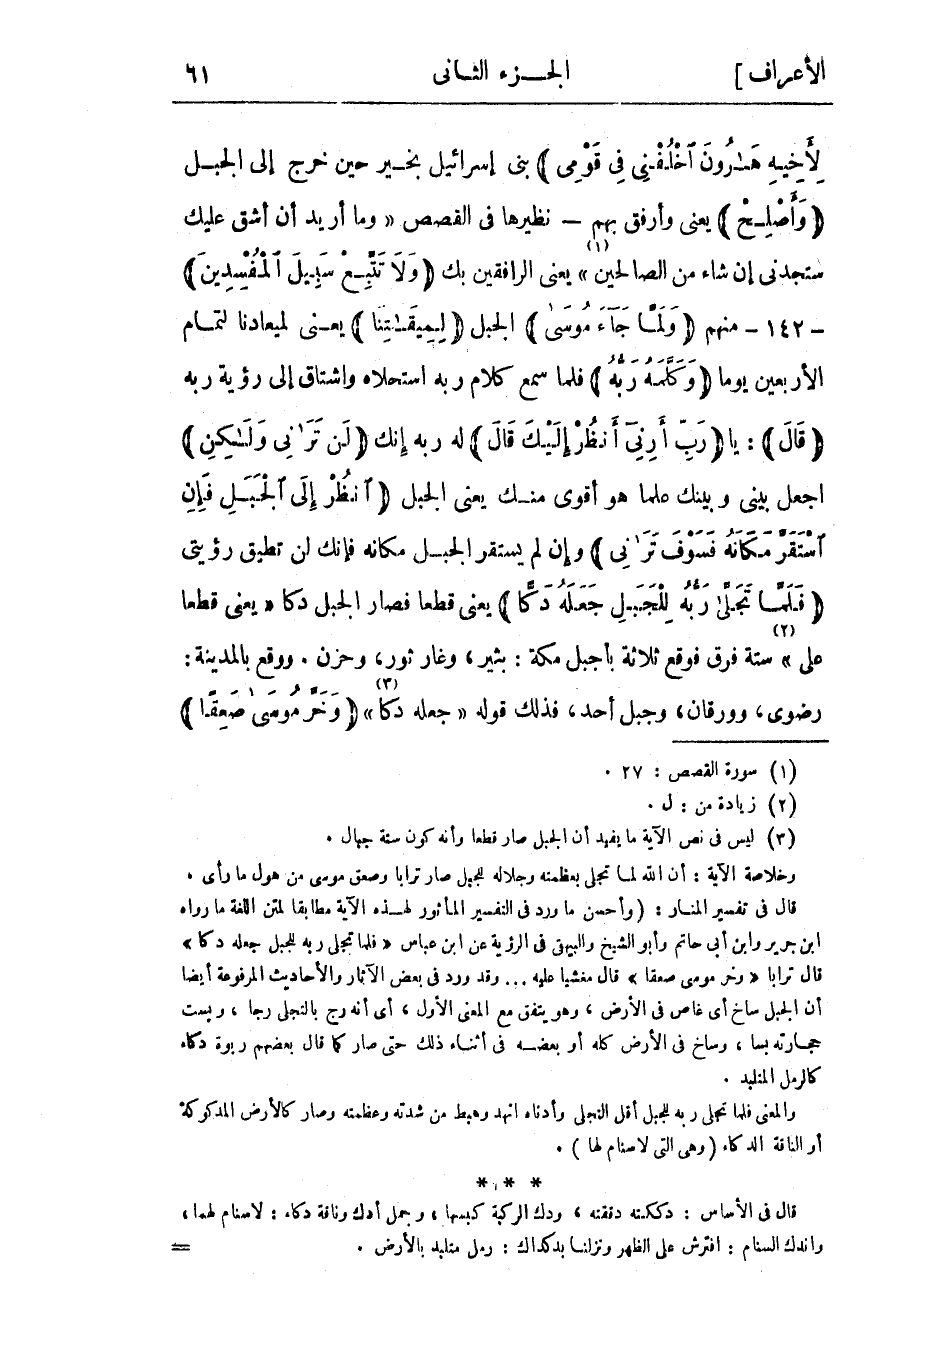 الأعراف] الجزء الثانى ٦١
لِأَخِيهِ هَـٰرُونَ ٱخْلُفْنِى فِى قَوْمِى ) بنى إسرائيل بخير حين خرج إلى الجبل
( وَأَصْلِحْ ) يعنى وأرفق بهم — نظيرها فى القصص « وما أريد أن أشق عليك
ستجدنى إن شاء من الصالحين » (١) يعنى الرافقين بك ( وَلَا تَتَّبِعْ سَبِيلَ ٱلْمُفْسِدِينَ )
- ١٤٢ - منهم ( وَلَمَّا جَآءَ مُوسَىٰ ) الجبل ( لِمِيقَـٰتِنَا ) يعنى لميعادنا لتمام
الأربعين يوما ( وَكَلَّمَهُ رَبُّهُ ) فلما سمع كلام ربه استحلاه واشتاق إلى رؤية ربه
( قَالَ ) : يا ( رَبِّ أَرِنِىٓ أَنظُرْ إِلَيْكَ قَالَ ) له ربه إنك ( لَن تَرَىٰنِى وَلَـٰكِنِ )
اجعل بينى وبينك علما هو أقوى منك يعنى الجبل ( ٱنظُرْ إِلَى ٱلْجَبَلِ فَإِنِ
ٱسْتَقَرَّ مَكَانَهُ فَسَوْفَ تَرَىٰنِى ) وإن لم يستقر الجبل مكانه فإنك لن تطيق رؤيتى
( فَلَمَّا تَجَلَّىٰ رَبُّهُ لِلْجَبَلِ جَعَلَهُ دَكًّا ) يعنى قطعا فصار الجبل دكا « يعنى قطعا
على » (٢) ستة فرق فوقع ثلاثة بأجبل مكة : بثير ، وغار ثور ، وحزن . ووقع بالمدينة :
رضوى ، وورقان ، وجبل أحد ، فذلك قوله « جعله دكا » (٣) ( وَخَرَّ مُوسَىٰ صَعِقًا )
(١) سورة القصص : ٢٧ .
(٢) زيادة من : ل .
(٣) ليس فى نص الآية ما يفيد أن الجبل صار قطعا وأنه كون ستة جبال .
وخلاصة الآية : أن الله لما تجلى بعظمته وجلاله للجبل صار ترابا وصعق موسى من هول ما رأى .
قال فى تفسير المنار : ( وأحسن ما ورد فى التفسير المأثور لهذه الآية مطابقا لمتن اللغة ما رواه
ابن جرير وابن أبى حاتم وأبو الشيخ والبيهقى فى الرؤية عن ابن عباس « فلما تجلى ربه للجبل جعله دكا »
قال ترابا « وخر موسى صعقا » قال مغشيا عليه ... وقد ورد فى بعض الآثار والأحاديث المرفوعة أيضا
أن الجبل ساخ أى غاص فى الأرض ، وهو يتفق مع المعنى الأول ، أى أنه رج بالتجلى رجا ، وبست
حجارته بسا ، وساخ فى الأرض كله أو بعضه فى أثناء ذلك حتى صار كما قال بعضهم ربوة دكاء
كالرمل المتلبد .
والمعنى فلما تجلى ربه للجبل أقل التجلى وأدناه انهد وهبط من شدته وعظمته وصار كالأرض المدكوكة
أو الناقة الدكاء ( وهى التى لا سنام لها ) .
* * *
قال فى الأساس : دككته دققته ، ودك الركية كبسها ، وجمل أدك وناقة دكاء : لا سنام لهما ،
واندك السنام : افترش على الظهر ونزلنا بدكداك : رمل متلبد بالأرض . =